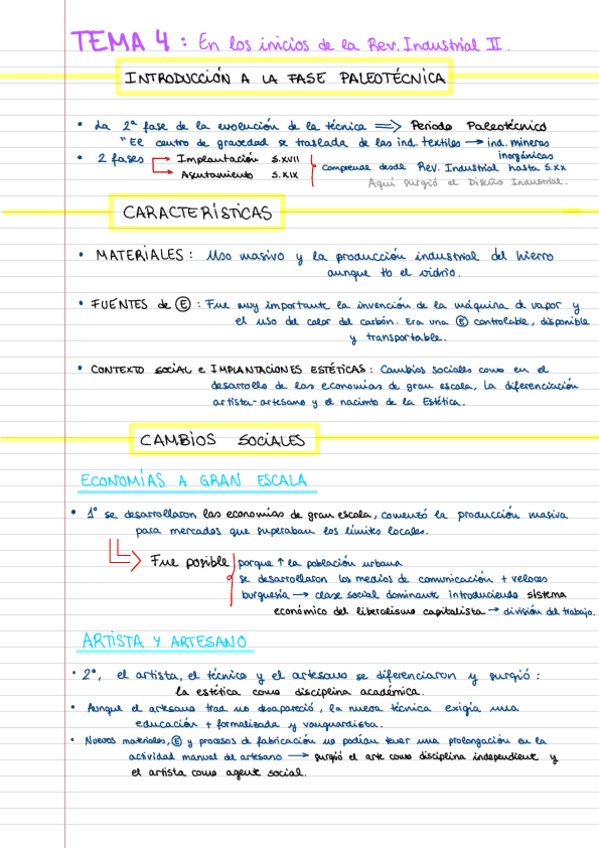 TEMA 4 : En los inicios de la Rev. Industrial II.
INTRODUCCIÓN A LA FASE PALEOTÉCNICA
• La 2ª fase de la evolución de la técnica => Periodo Paleotécnico
"El centro de gravedad se traslada de las ind. textiles → ind. mineras
inorgánicas
• 2 fases → Implantación S.XVII
→ Asentamiento S.XIX
comprende desde Rev. Industrial hasta S.XX
Aquí surgió el Diseño Industrial.
CARACTERÍSTICAS
• MATERIALES: Uso masivo y la producción industrial del hierro
aunque tb el vidrio.
• FUENTES de Ⓔ : Fue muy importante la invención de la máquina de vapor y
el uso del calor del carbón. Era una Ⓔ controlable, disponible
y transportable.
• CONTEXTO SOCIAL e IMPLANTACIONES ESTÉTICAS: Cambios sociales como en el
desarrollo de las economías de gran escala, la diferenciación
artista-artesano y el nacimto de la Estética.
CAMBIOS SOCIALES
ECONOMÍAS A GRAN ESCALA
• 1º se desarrollaron las economías de gran escala, comenzó la producción masiva
para mercados que superaban los límites locales.
Fue posible porque ↑ la población urbana
se desarrollaron los medios de comunicación + veloces
burguesía → clase social dominante introduciendo sistema
económico del liberalismo capitalista → división del trabajo.
ARTISTA Y ARTESANO
• 2º, el artista, el técnico y el artesano se diferenciaron y surgió:
la estética como disciplina académica.
• Aunque el artesano trad no desapareció, la nueva técnica exigía una
educación + formalizada y vanguardista.
• Nuevos materiales, Ⓔ y procesos de fabricación no podían tener una prolongación en la
actividad manual del artesano → surgió el arte como disciplina independient y
el artista como agente social.